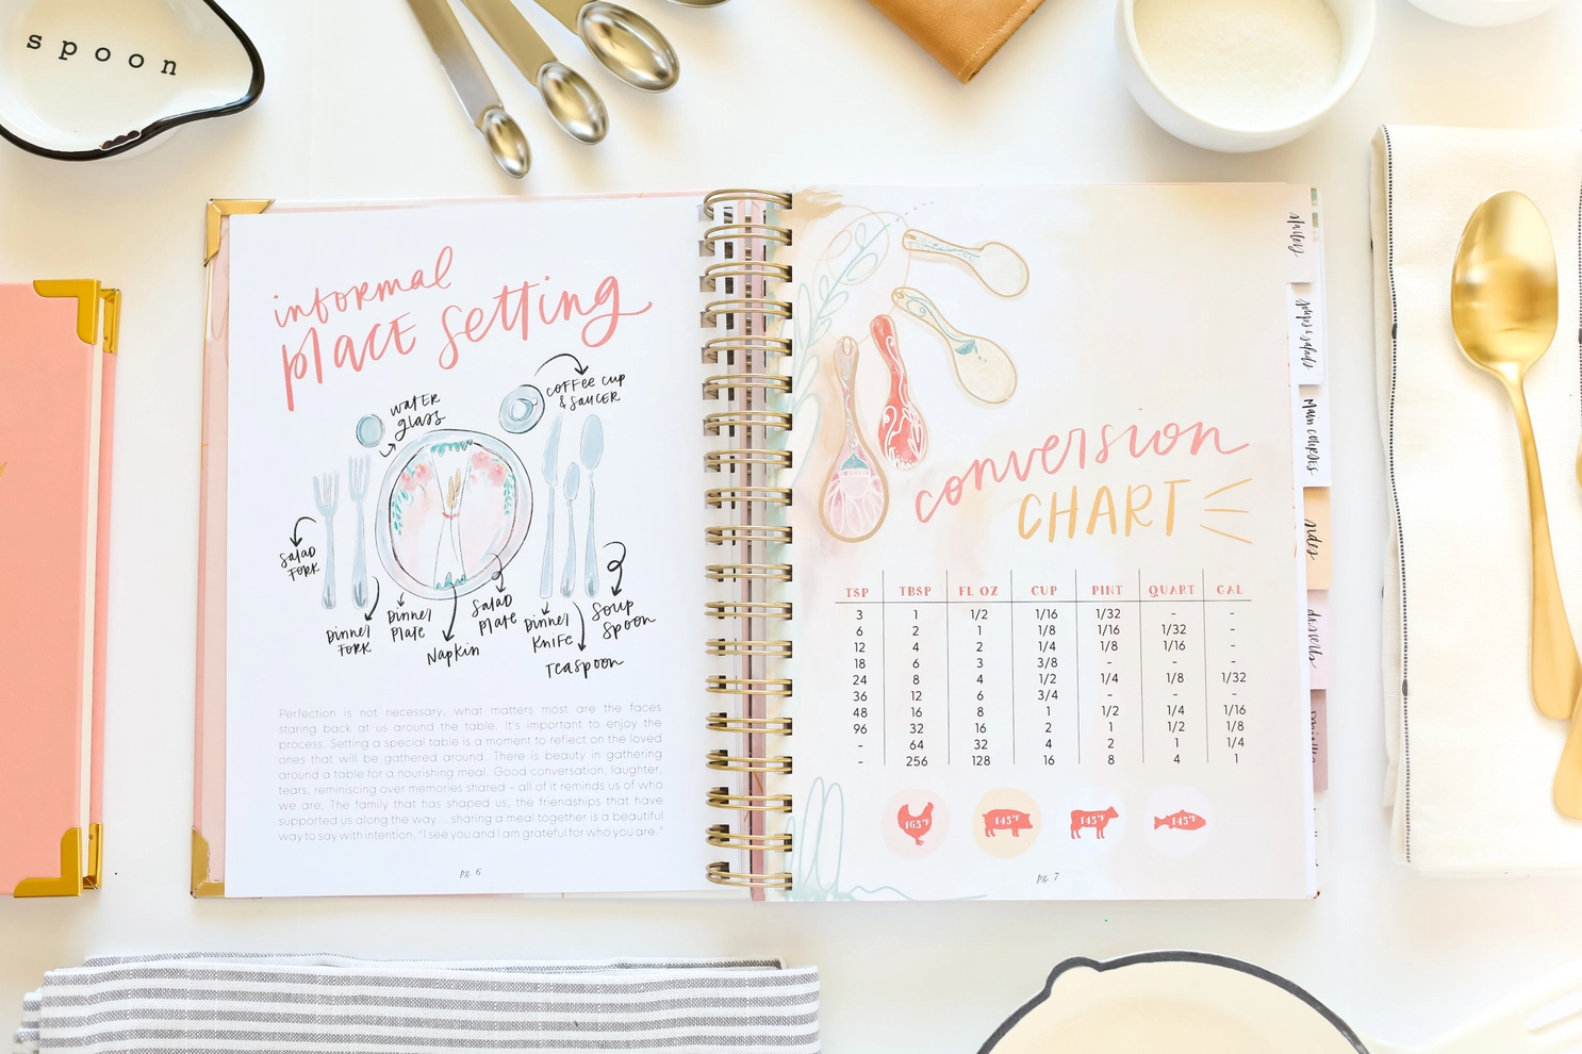 spoon
informal
place setting
water
glass
coffee cup
& saucer
salad
fork
dinner
fork
dinner
plate
napkin
salad
plate
dinner
knife
teaspoon
soup
spoon
Perfection is not necessary, what matters most are the faces
staring back at us around the table. It's important to enjoy the
process. Setting a special table is a moment to reflect on the loved
ones that will be gathered around. There is beauty in gathering
around a table for a nourishing meal. Good conversation, laughter,
tears, reminiscing over memories shared - all of it reminds us of who
we are. The family that has shaped us, the friendships that have
supported us along the way... sharing a meal together is a beautiful
way to say with intention, "I see you and I am grateful for who you are."
pg. 6
conversion
CHART
TSP TBSP FL OZ CUP PINT QUART GAL
3 1 1/2 1/16 1/32 - -
6 2 1 1/8 1/16 1/32 -
12 4 2 1/4 1/8 1/16 -
18 6 3 3/8 - - -
24 8 4 1/2 1/4 1/8 1/32
36 12 6 3/4 - - -
48 16 8 1 1/2 1/4 1/16
96 32 16 2 1 1/2 1/8
- 64 32 4 2 1 1/4
- 256 128 16 8 4 1
165°F 145°F 145°F 145°F
pg. 7
soups & salads
main courses
sides
desserts